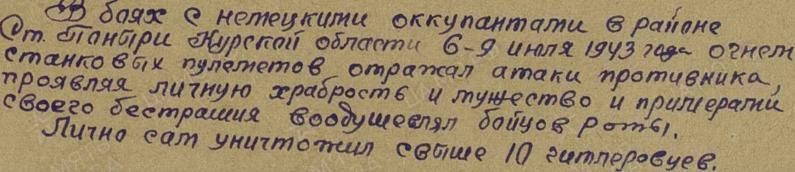 В боях с немецкими оккупантами в районе
Ст. Поныри Курской области 6-9 июля 1943 года огнем
станковых пулеметов отражал атаки противника,
проявляя личную храбрость и мужество и примерами
своего бестрашия воодушевлял бойцов роты.
Лично сам уничтожил свыше 10 гитлеровцев.